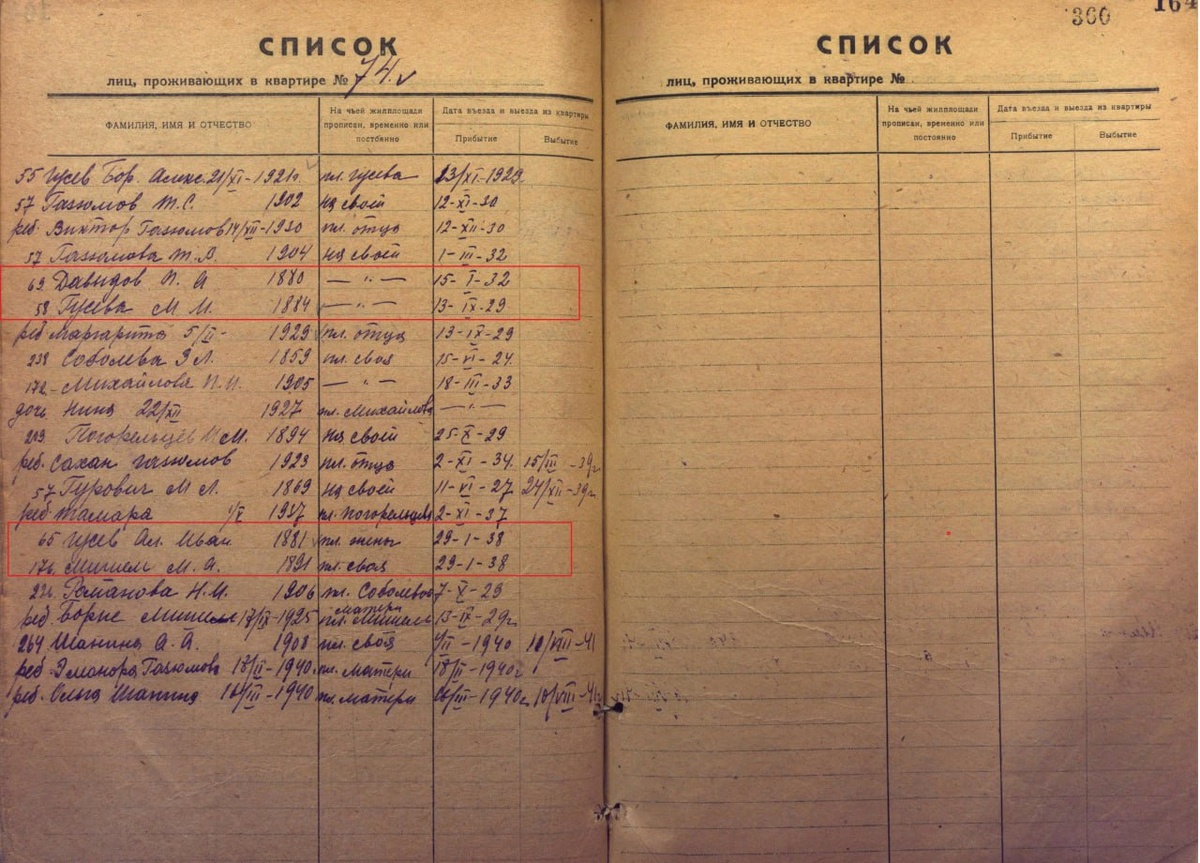 СПИСОК
лиц, проживающих в квартире № 74.
ФАМИЛИЯ, ИМЯ И ОТЧЕСТВО
На чьей жилплощади прописан, временно или постоянно
Дата въезда и выезда из квартиры
Прибытие
Выбытие
55 Гусев Бор. Алекс. 21/XI-1921г. пл. Гусева 23/XI-1929
57 Газюмов Т.С. 1902 на своей 12-XI-30
реб. Виктор Газюмов 14/XII-1930 пл. отца 12-XII-30
57 Газюмова 1904 на своей 1-III-32
63 Давыдов П. А 1880 — " — 15-I-32
58 Гусева М И. 1884 — " — 13-IX-29
реб Маргарита 5/II- 1929 пл. отца 13-IX-29
238 Соболева Э Л. 1859 пл. своя 15-VI-24.
172 Михайлова П. И. 1905 — " — 18-III-33
дочь Нина 22/XII 1927 пл. Михайлова — " —
Погорельцев И М. 1894 на своей 25-X-29
реб. Газюмов 1923 пл. отца 2-XI-34. 15/III-39г
57 Гурович М Л. 1869 на своей 11-VI-27 24/XII-39г
реб Тамара 1937 пл. Погорельцев 2-XI-37
65 Гусев Ал. Иван 1881 пл. жены 29-1-38
176 Мишель М. А. 1891 пл. своя 29-1-38
Романова Н.М. 1906 пл. Соболевой 7-X-29
реб. Борис Мишель 17/IX-1925 пл. матери Мишель 13-IX-29г
264 Шанина А. А. 1908 пл. своя 1940 10/VIII-41
реб Газюмова 18/II-1940. пл. матери 18/II-1940г
реб. Ольга Шанина 16/III-1940 пл. матери 16/III-1940г 10/VIII-41г
360
164
СПИСОК
лиц, проживающих в квартире №
ФАМИЛИЯ, ИМЯ И ОТЧЕСТВО
На чьей жилплощади прописан, временно или постоянно
Дата въезда и выезда из квартиры
Прибытие
Выбытие